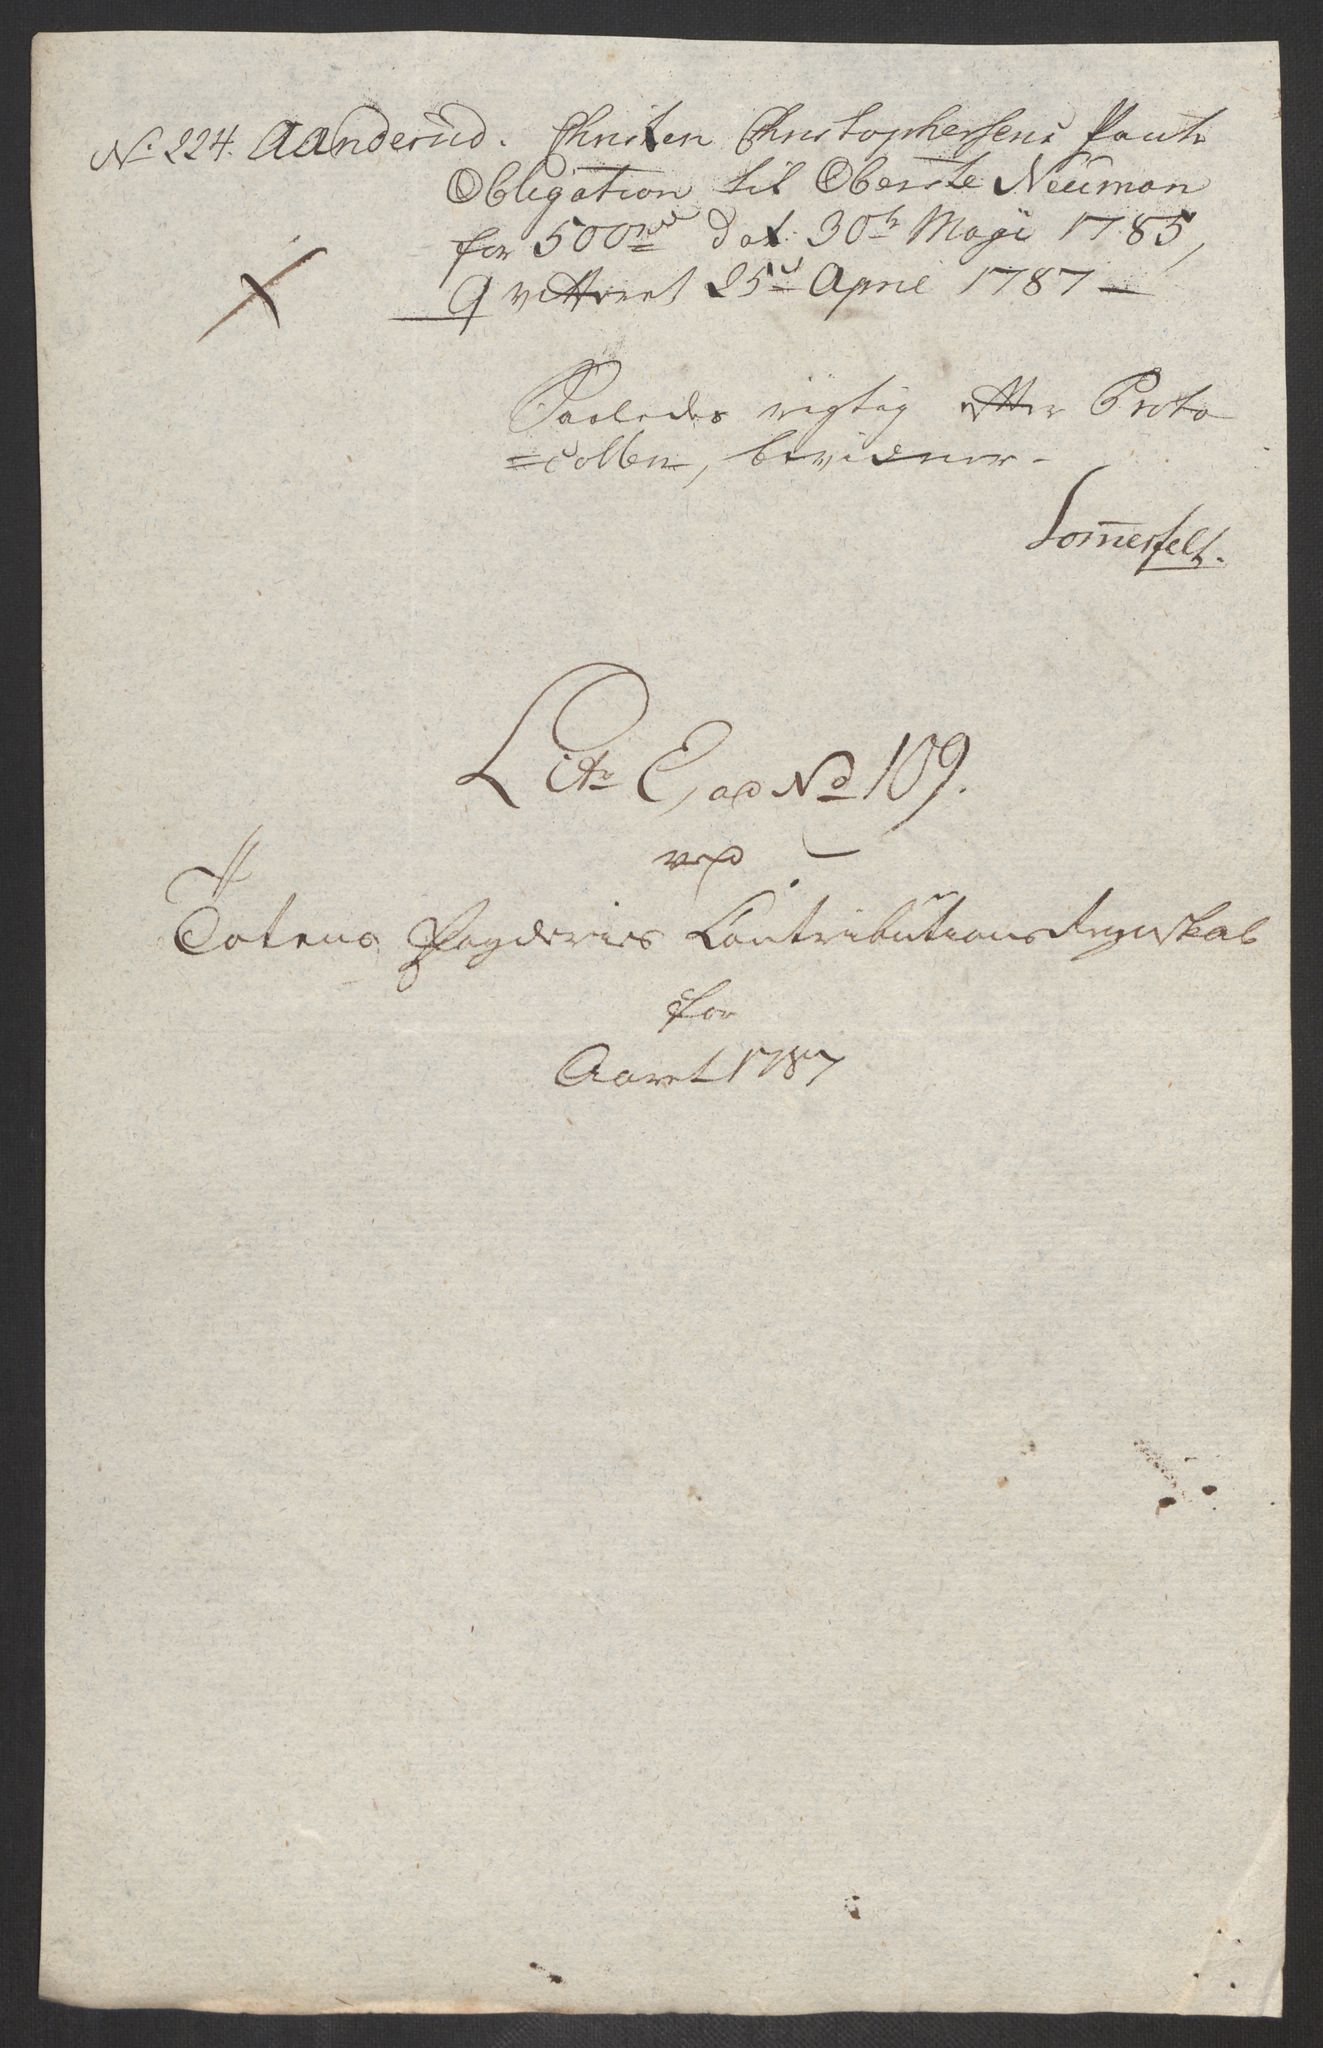 No. 224. Aanderud. Christen Christophersens Pante
Obligation til Oberste Neüman
for 500 rd dat: 30te Maji 1785,
Qvitteret 25de April 1787 —
Saaledes rigtig efter Proto
=collen, bevidner.
Sommerfelt.
Litr E, ad No 109.
ved
Totens Fogderies Contributions Regnskab
for
Aaret 1787